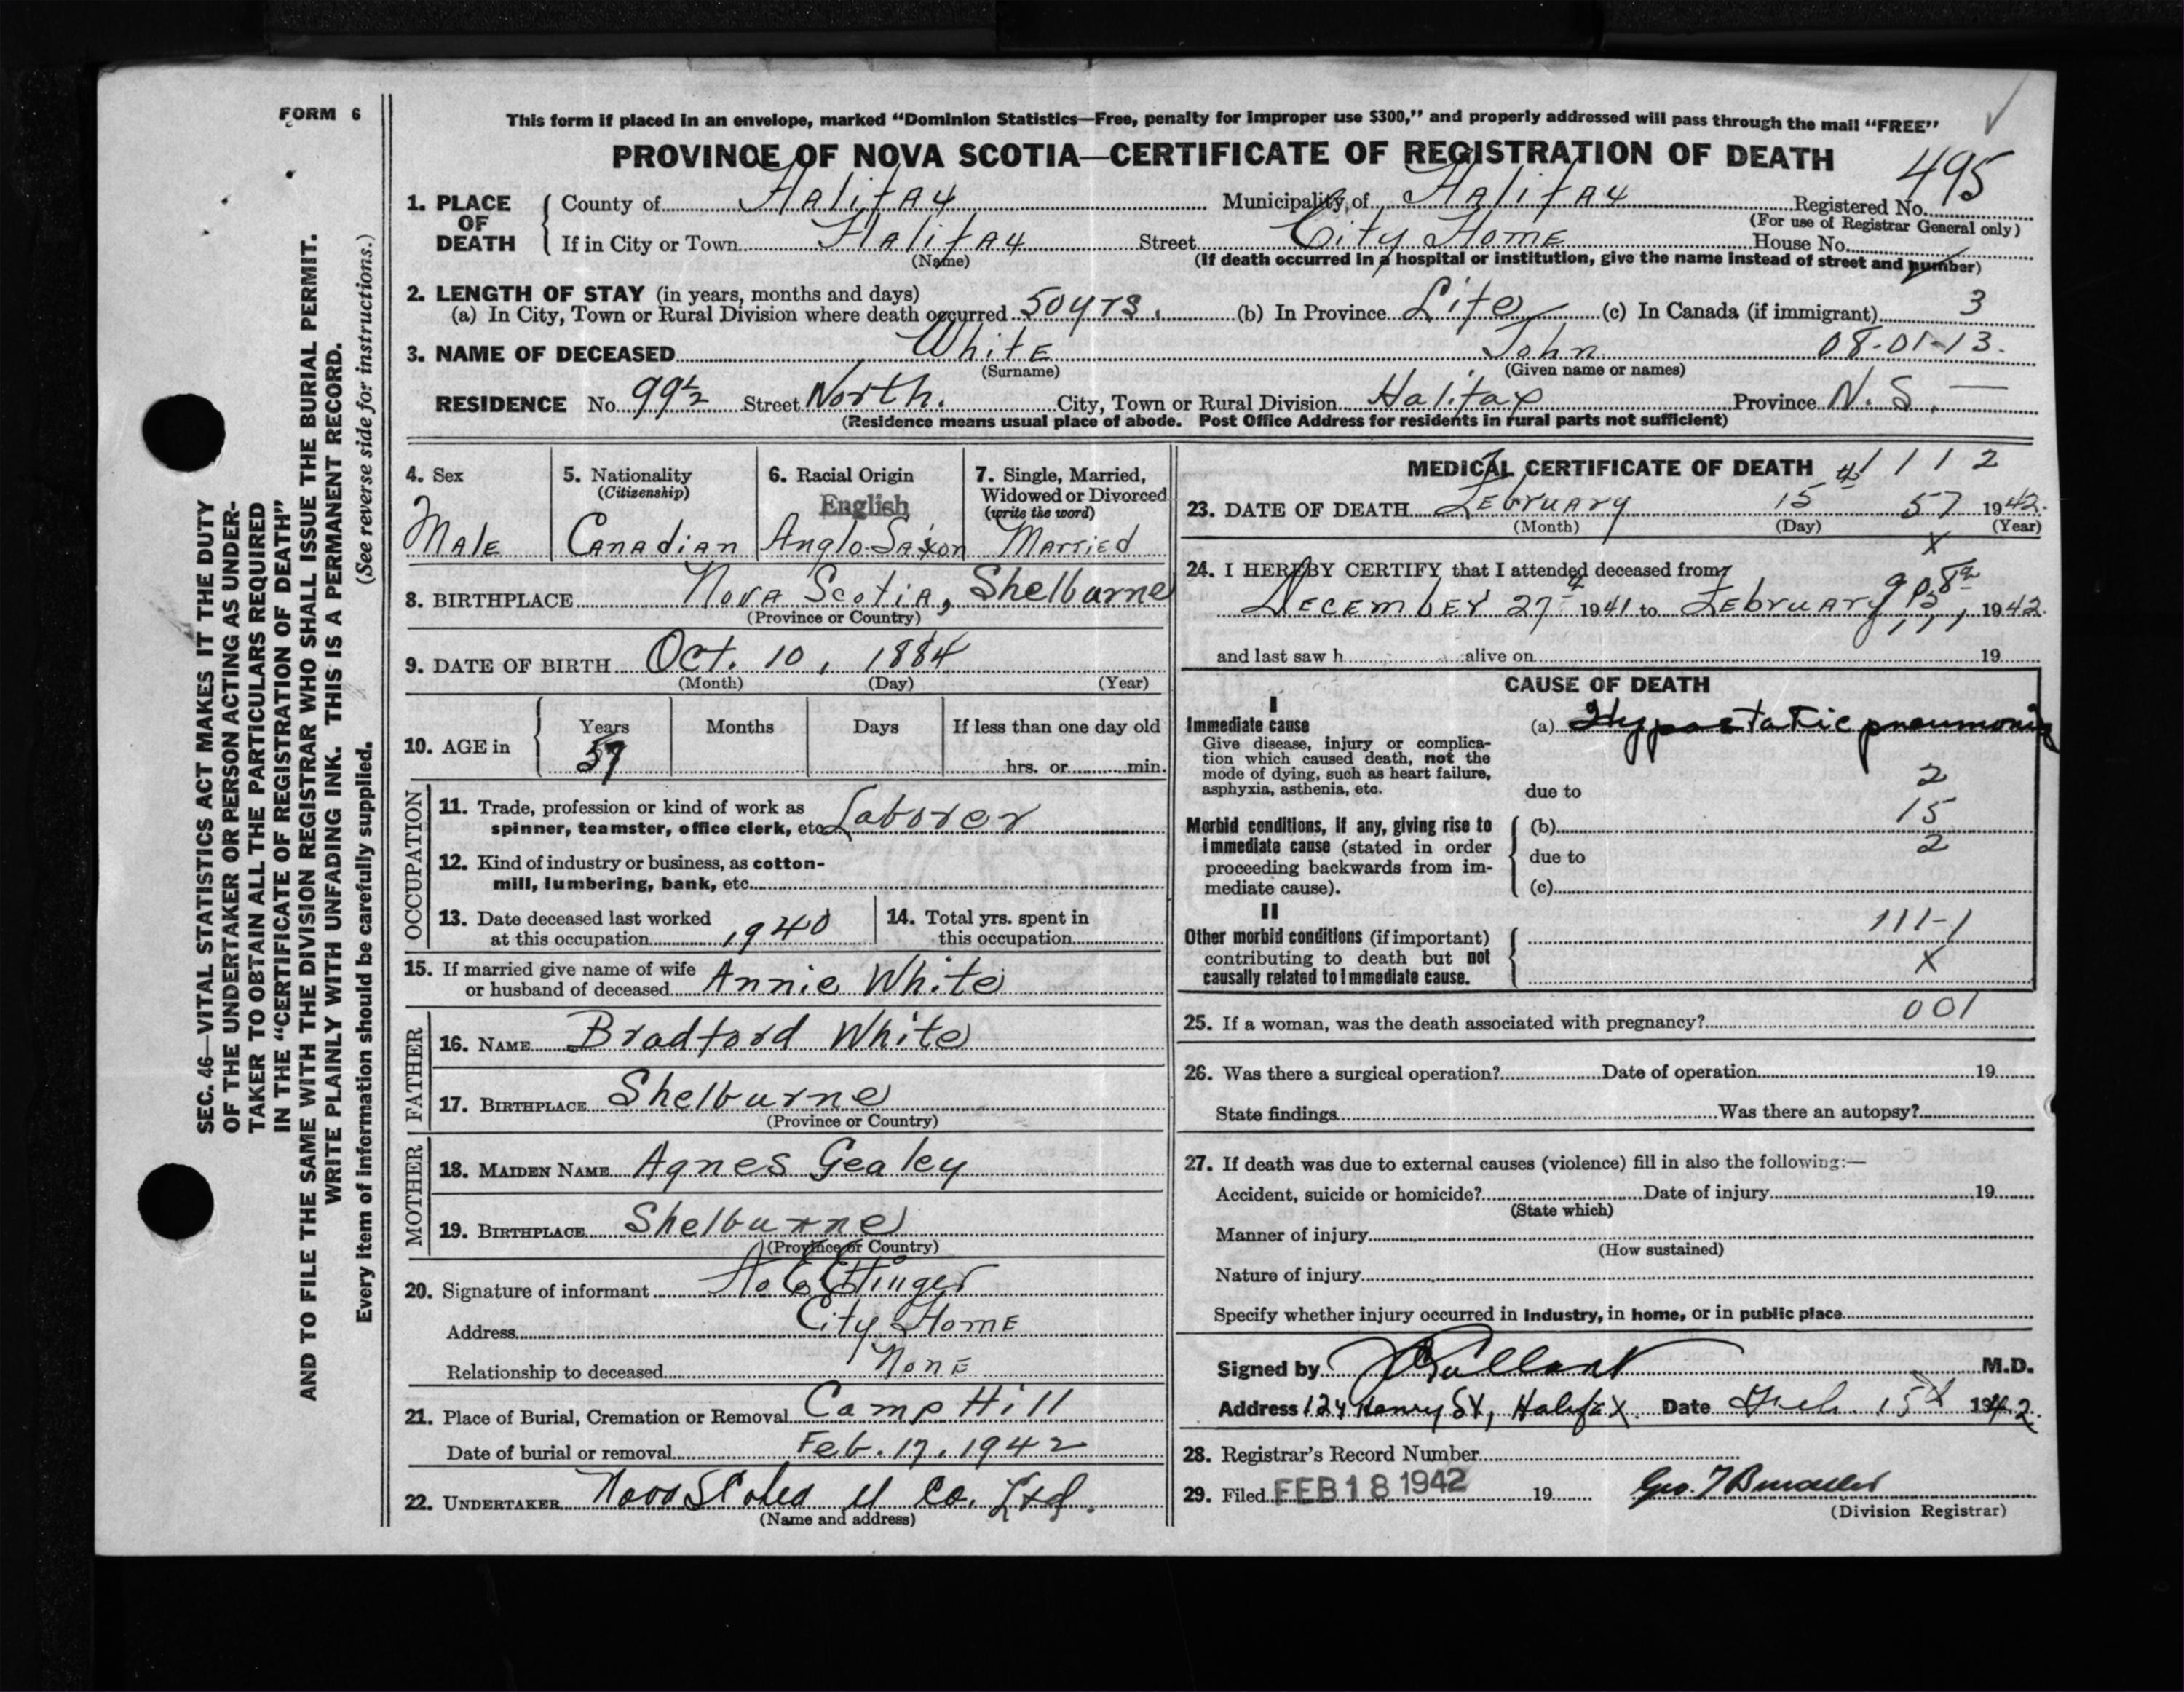 FORM 6
This form if placed in an envelope, marked "Dominion Statistics—Free, penalty for improper use $300," and properly addressed will pass through the mail "FREE"
PROVINCE OF NOVA SCOTIA—CERTIFICATE OF REGISTRATION OF DEATH
495
1. PLACE OF DEATH
County of Halifax Municipality of Halifax Registered No.
(For use of Registrar General only)
If in City or Town Halifax Street City Home House No.
(Name) (If death occurred in a hospital or institution, give the name instead of street and number)
2. LENGTH OF STAY (in years, months and days)
(a) In City, Town or Rural Division where death occurred 50 yrs. (b) In Province Life (c) In Canada (if immigrant) 3
3. NAME OF DECEASED White John 08-01-13.
(Surname) (Given name or names)
RESIDENCE No. 99½ Street North. City, Town or Rural Division Halifax Province N.S. —
(Residence means usual place of abode. Post Office Address for residents in rural parts not sufficient)
4. Sex
Male
5. Nationality
(Citizenship)
Canadian
6. Racial Origin
English
Anglo-Saxon
7. Single, Married,
Widowed or Divorced
(write the word)
Married
8. BIRTHPLACE Nova Scotia, Shelburne
(Province or Country)
9. DATE OF BIRTH Oct. 10, 1884
(Month) (Day) (Year)
10. AGE in
Years Months Days If less than one day old
57 hrs. or min.
OCCUPATION
11. Trade, profession or kind of work as
spinner, teamster, office clerk, etc. Laborer
12. Kind of industry or business, as cotton-
mill, lumbering, bank, etc.
13. Date deceased last worked
at this occupation 1940
14. Total yrs. spent in
this occupation
15. If married give name of wife
or husband of deceased Annie White
FATHER
16. NAME Bradford White
17. BIRTHPLACE Shelburne
(Province or Country)
MOTHER
18. MAIDEN NAME Agnes Gealey
19. BIRTHPLACE Shelburne
(Province or Country)
20. Signature of informant Ettinger
Address City Home
Relationship to deceased None
21. Place of Burial, Cremation or Removal Camp Hill
Date of burial or removal Feb. 17, 1942
22. UNDERTAKER Nova Scotia U Co. Ltd.
(Name and address)
MEDICAL CERTIFICATE OF DEATH 1112
23. DATE OF DEATH February 15 57 1942.
(Month) (Day) (Year)
x
24. I HEREBY CERTIFY that I attended deceased from
December 27 1941 to February 1942.
and last saw h alive on 19
CAUSE OF DEATH
I
Immediate cause
Give disease, injury or complica-
tion which caused death, not the
mode of dying, such as heart failure,
asphyxia, asthenia, etc.
(a) Hypostatic pneumonia
2
due to
15
Morbid conditions, if any, giving rise to
immediate cause (stated in order
proceeding backwards from im-
mediate cause).
(b)
2
due to
(c)
II
Other morbid conditions (if important)
contributing to death but not
causally related to immediate cause.
111-1
X
25. If a woman, was the death associated with pregnancy? 001
26. Was there a surgical operation? Date of operation 19
State findings Was there an autopsy?
27. If death was due to external causes (violence) fill in also the following:—
Accident, suicide or homicide? Date of injury 19
(State which)
Manner of injury
(How sustained)
Nature of injury
Specify whether injury occurred in industry, in home, or in public place
Signed by M.D.
Address 124 Henry St, Halifax Date Feb. 15th 1942.
28. Registrar's Record Number
29. Filed FEB 18 1942 19
(Division Registrar)
SEC. 46—VITAL STATISTICS ACT MAKES IT THE DUTY
OF THE UNDERTAKER OR PERSON ACTING AS UNDER-
TAKER TO OBTAIN ALL THE PARTICULARS REQUIRED
IN THE "CERTIFICATE OF REGISTRATION OF DEATH"
AND TO FILE THE SAME WITH THE DIVISION REGISTRAR WHO SHALL ISSUE THE BURIAL PERMIT.
WRITE PLAINLY WITH UNFADING INK. THIS IS A PERMANENT RECORD.
Every item of information should be carefully supplied. (See reverse side for instructions.)